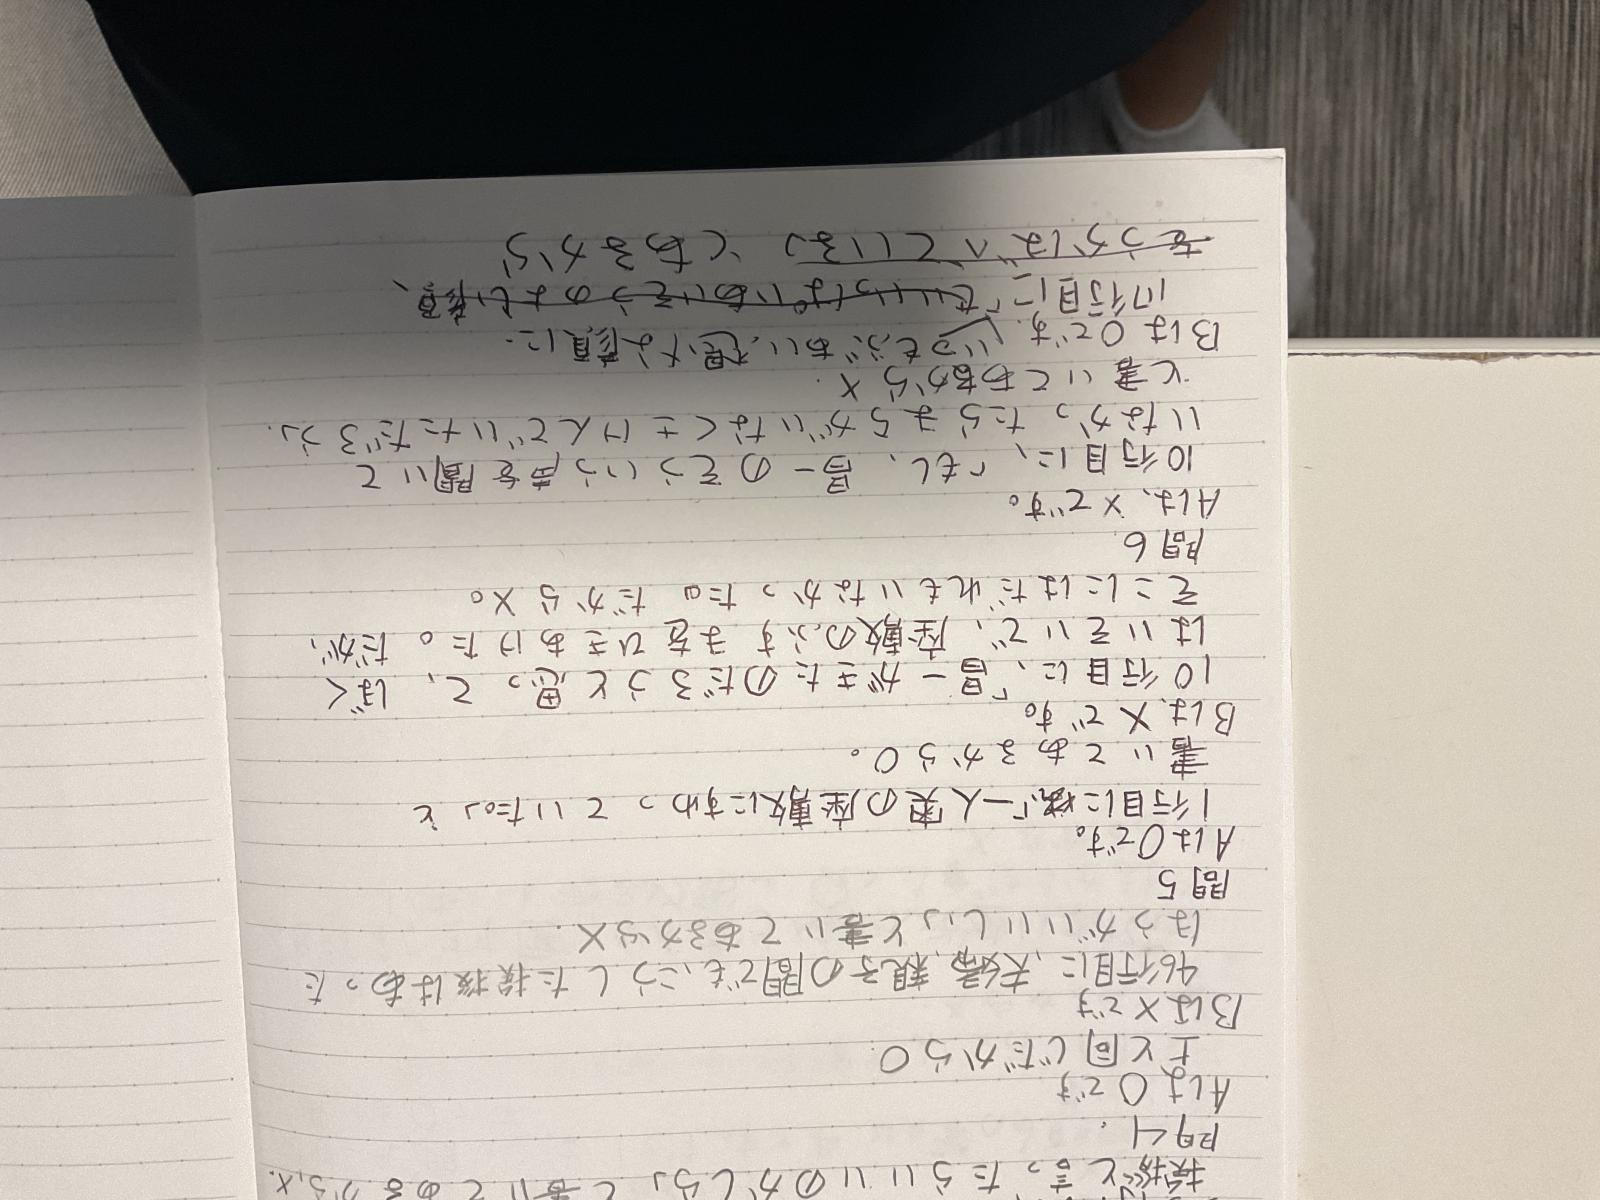 挨拶と言ったらいいのかしら」と書いてあるから、X.
問4.
Aは〇です
上と同じだから〇
BはXです
46行目に、夫婦、親子の間でも、こうした挨拶はあった
ほうがいいし、」と書いてあるからX.
問5
Aは〇です。
1行目に「一人奥の座敷にすわっていた。」と
書いてあるから〇。
BはXです。
10行目に、「昌一がきたのだろうと思って、ぼく
はいそいで、座敷のふすまをひきあけた。だが、
そこにはだれもいなかった。だからX。
問6
Aは、Xです。
10行目に、「もし、昌一のそういう声を聞いて
いなかったらまちがいなくさけんでいただろう」
と書いてあるからX.
Bは〇です。
17行目に「せいいっぱいあいそうのよい
をうかべている」とあるから